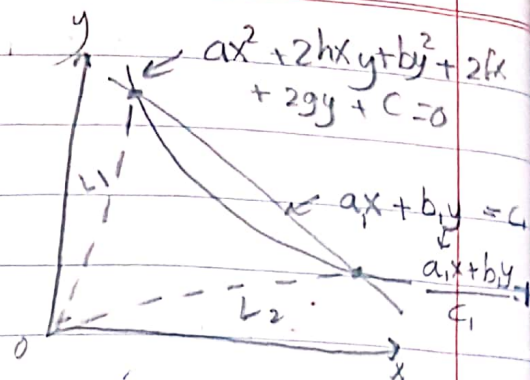 y
ax² + 2hxy + by² + 2fx
+ 2gy + C = 0
L1
a₁x + b₁y = C₁
a₁x + b₁y = 1
C₁
L2
0
x